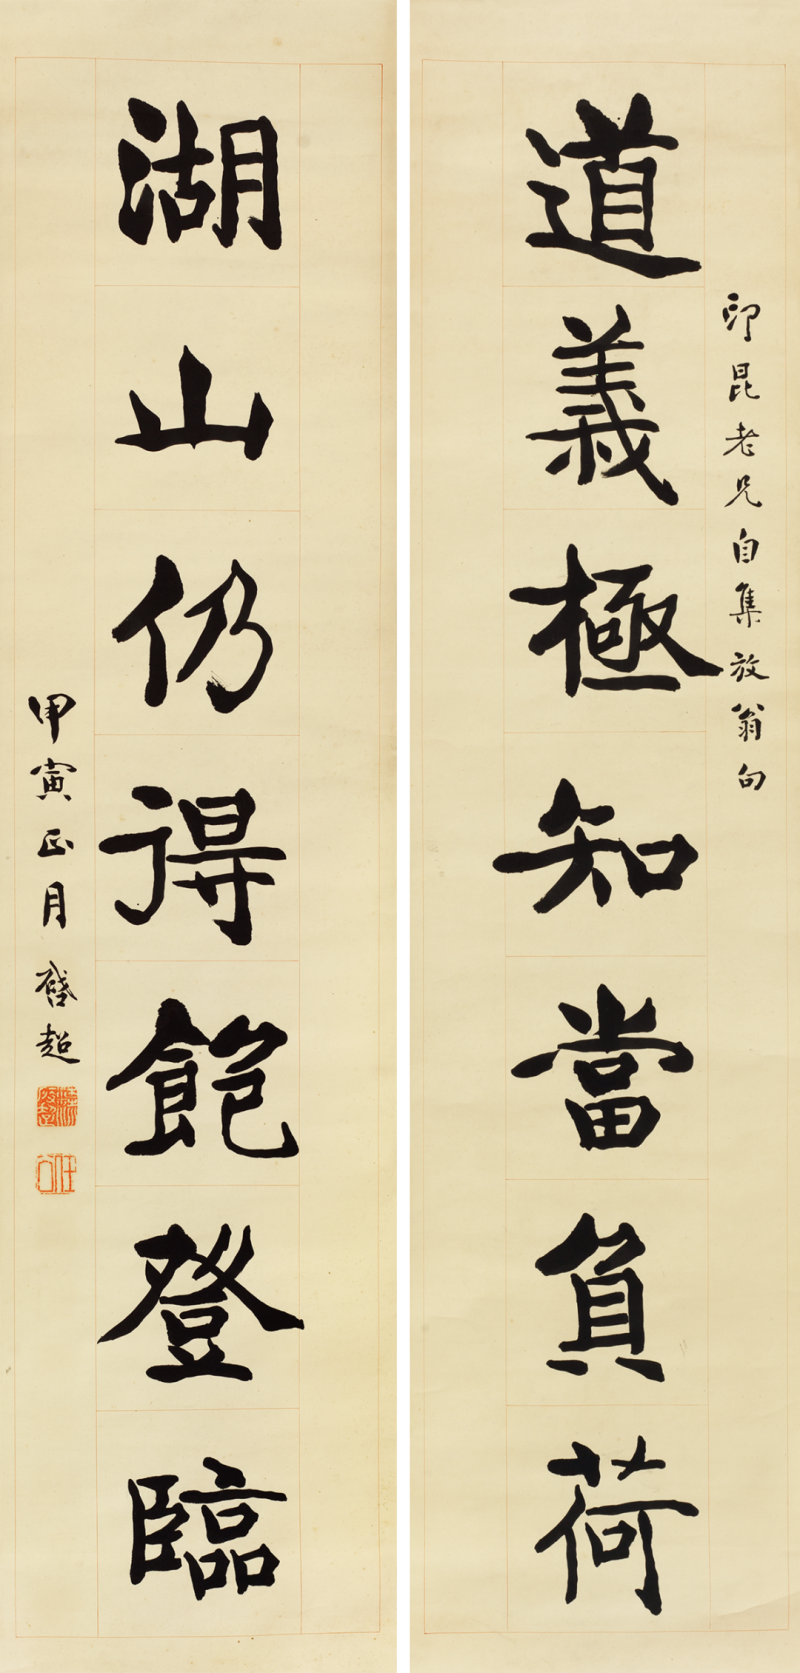 印昆老兄自集放翁句
道義極知當負荷
湖山仍得飽登臨
甲寅正月啓超